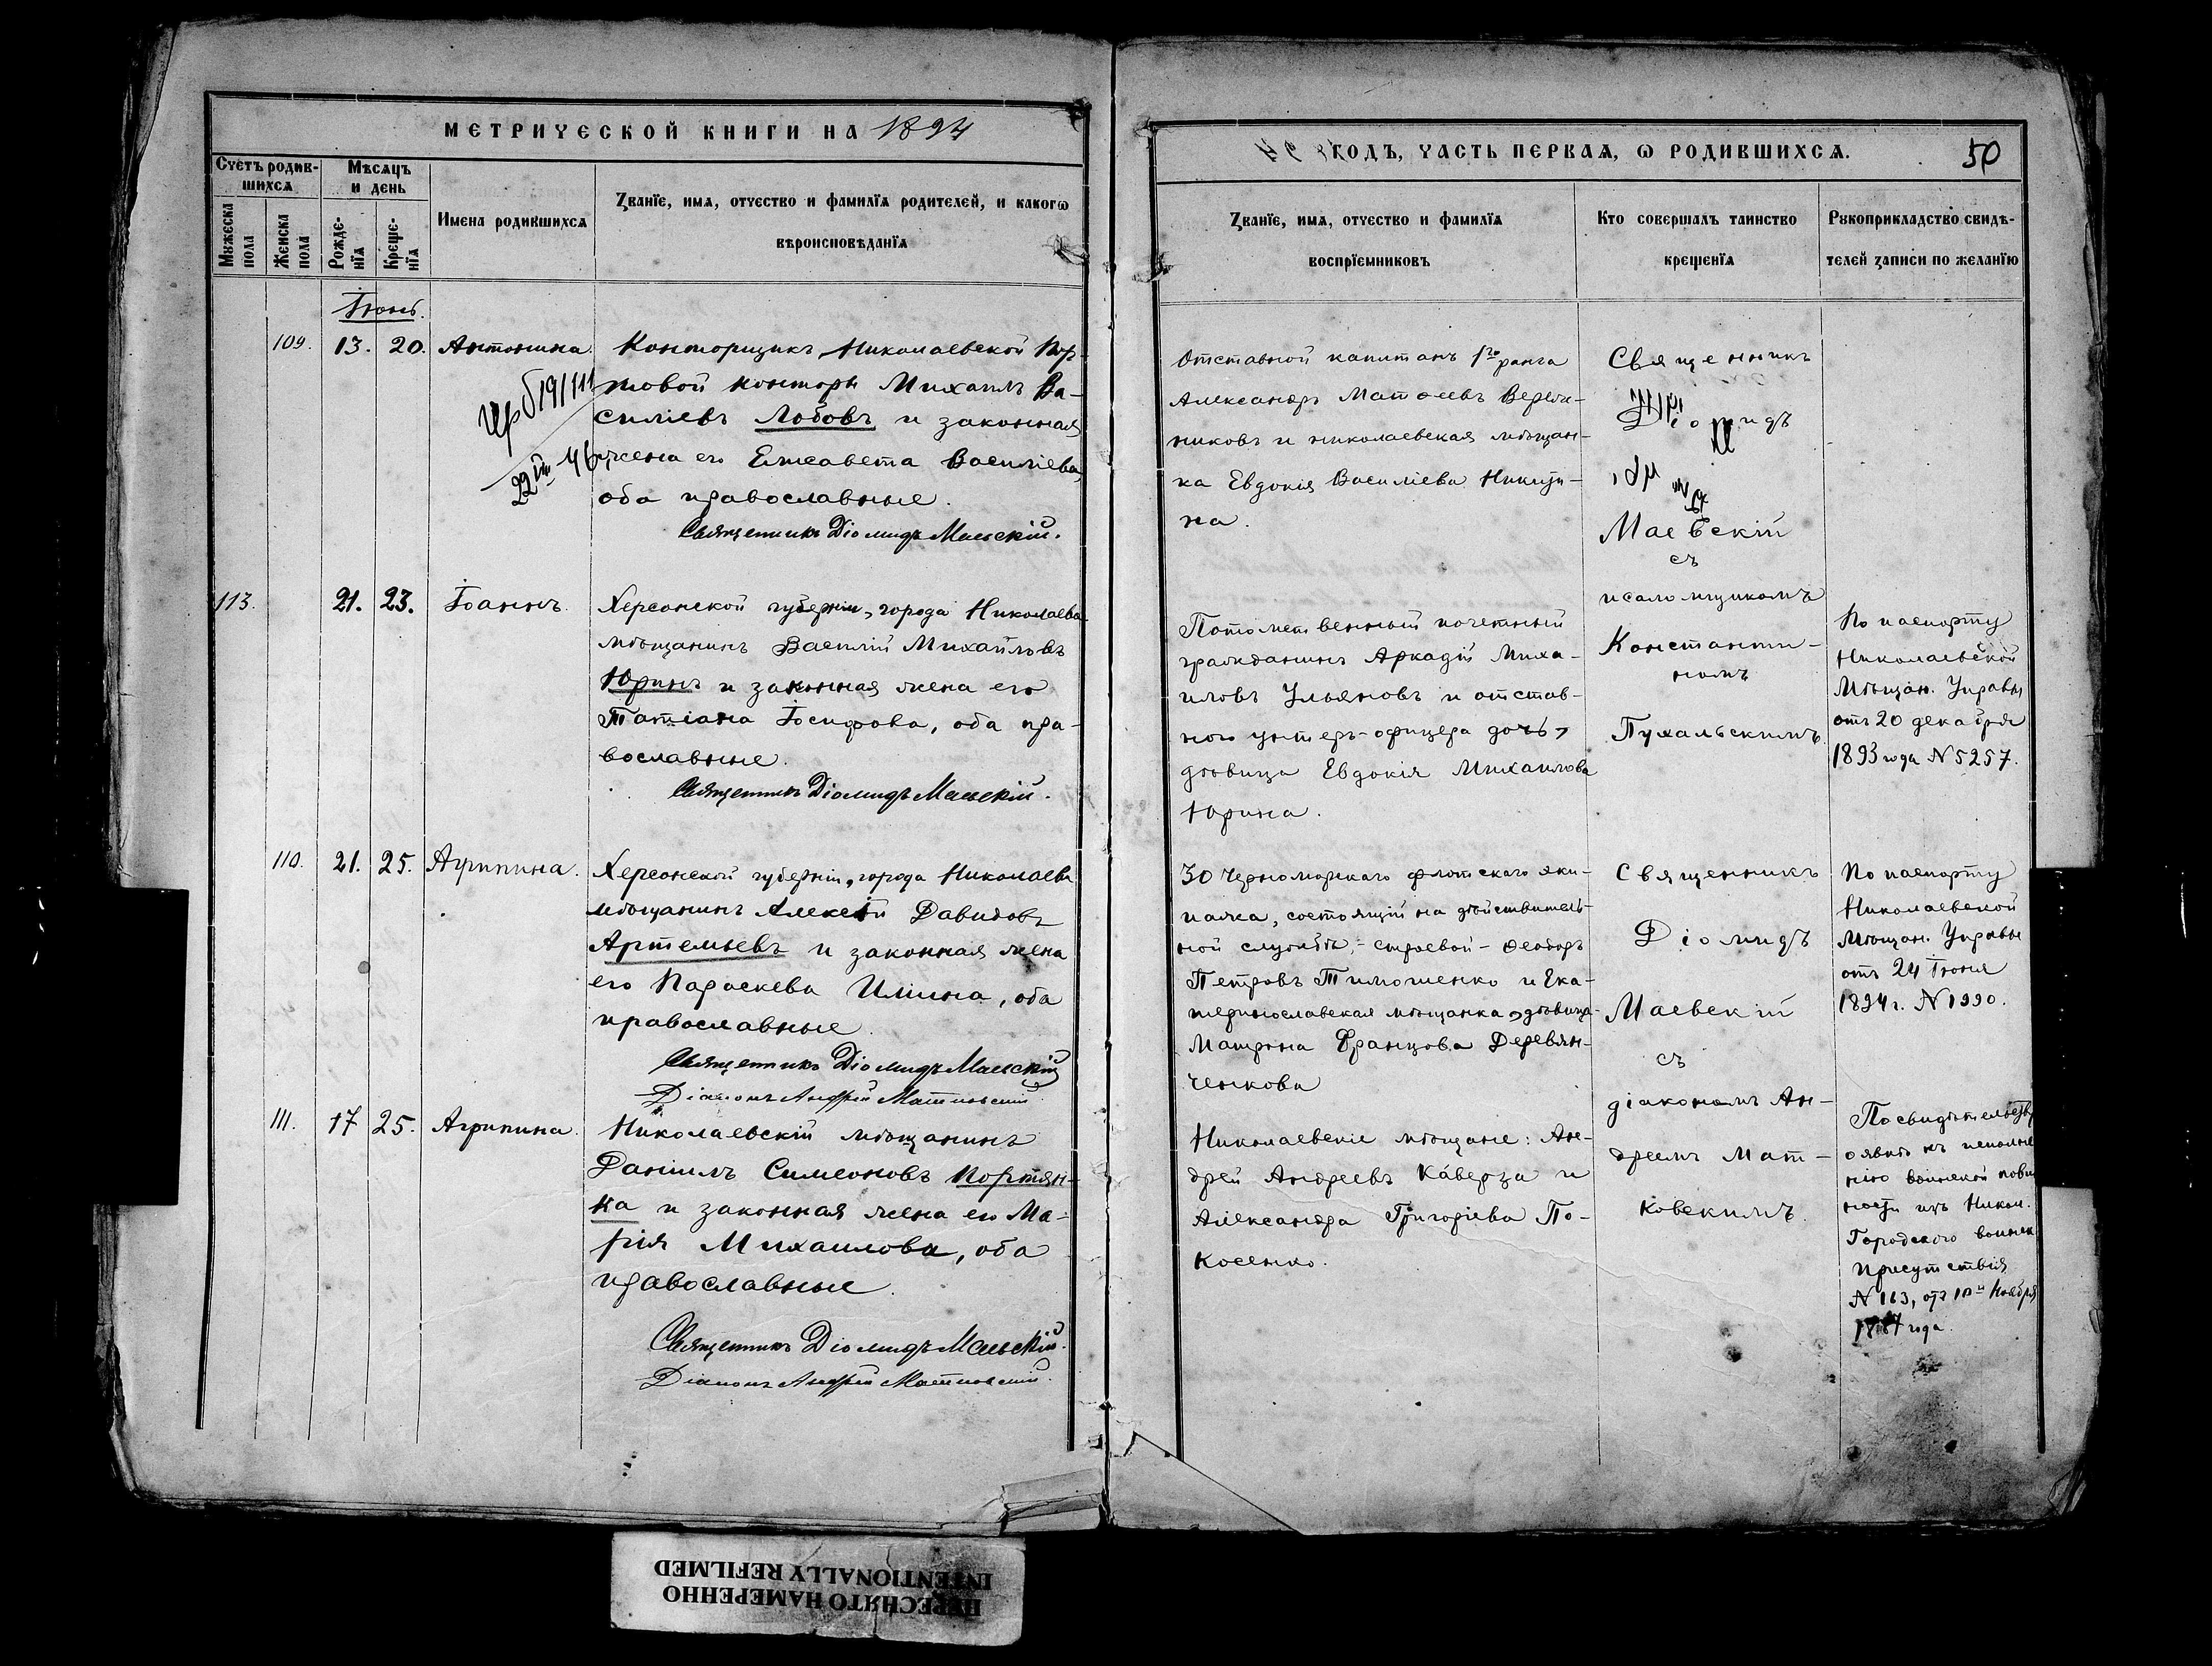 МЕТРИЧЕСКОЙ КНИГИ НА 1894
Счетъ родив-
шихся
Мужеска пола
Женска пола
Мѣсяцъ
и день
Рожде-
нїя
Креще-
нїя
Имена родившихся
Званїе, имя, отчество и фамилїя родителей, и какогѡ
вѣроисповѣданїя
Іюнь.
109. 13. 20. Антонина
Конторщикъ Николаевской Пор-
товой конторы Михаилъ Ва-
силіевъ Лобовъ и законная
жена его Елисавета Василіева,
оба православные.
Священникъ Діомидъ Маевскій.
113. 21. 23. Іоаннъ.
Херсонской губерніи, города Николаева
мѣщанинъ Василій Михайловъ
Юринъ и законная жена его
Татіана Іосифова, оба пра-
вославные.
Священникъ Діомидъ Маевскій.
110. 21. 25. Агрипина.
Херсонской губерніи, города Николаева
мѣщанинъ Алексѣй Давидовъ
Артемьевъ и законная жена
его Параскева Иліина, оба
православные.
Священникъ Діомидъ Маевскій
Діаконъ Андрей Матковскій
111. 17 25. Агрипина.
Николаевскій мѣщанинъ
Даніилъ Симеоновъ Портян-
ка и законная жена его Ма-
рія Михаилова, оба
православные.
Священникъ Діомидъ Маевскій.
Діаконъ Андрей Матковскій.
ГОДЪ, ЧАСТЬ ПЕРВАЯ, Ѡ РОДИВШИХСЯ.
50
Званїе, имя, отчество и фамилїя
воспрїемниковъ
Кто совершалъ таинство
крещенїя
Рукоприкладство свидѣ-
телей записи по желанїю
Отставной капитанъ 1го ранга
Александръ Матѳеевъ
и николаевская мѣщан-
ка Евдокія Василіева Никити-
на.
Священникъ
Діомидъ
Маевскій
съ
псаломщикомъ
Константи-
номъ
Пухальскимъ.
Потомственный почетный
гражданинъ Аркадій Миха-
иловъ Ульяновъ и отстав-
ного унтеръ-офицера дочь,
дѣвица Евдокія Михаилова
Юрина.
По паспорту
Николаевской
Мѣщан. Управы
отъ 20 декабря
1893 года N 5257.
30 Черноморскаго флотскаго эки-
пажа, состоящій на дѣйствитель-
ной службѣ, - строевой - Ѳеодоръ
Петровъ Тимошенко и Ека-
теринославская мѣщанка, дѣвица
Матрона Францова Деревян-
ченкова
Священникъ
Діомидъ
Маевскій
съ
діакономъ Ан-
дреемъ Мат-
ковскимъ.
По паспорту
Николаевской
Мѣщан. Управы
отъ 24 Іюня
1894 г. N 1990.
Николаевскіе мѣщане: Ан-
дрей Андреевъ Каверза и
Александра Григоріева По-
косенко.
По свидѣтельству
о явкѣ къ исполне
нію воинской пови
ности изъ Никол.
Городского воинск.
присутствія
N 163, отъ Ноября
года.
ПЕРЕСНЯТО НАМЕРЕННО
INTENTIONALLY REFILMED